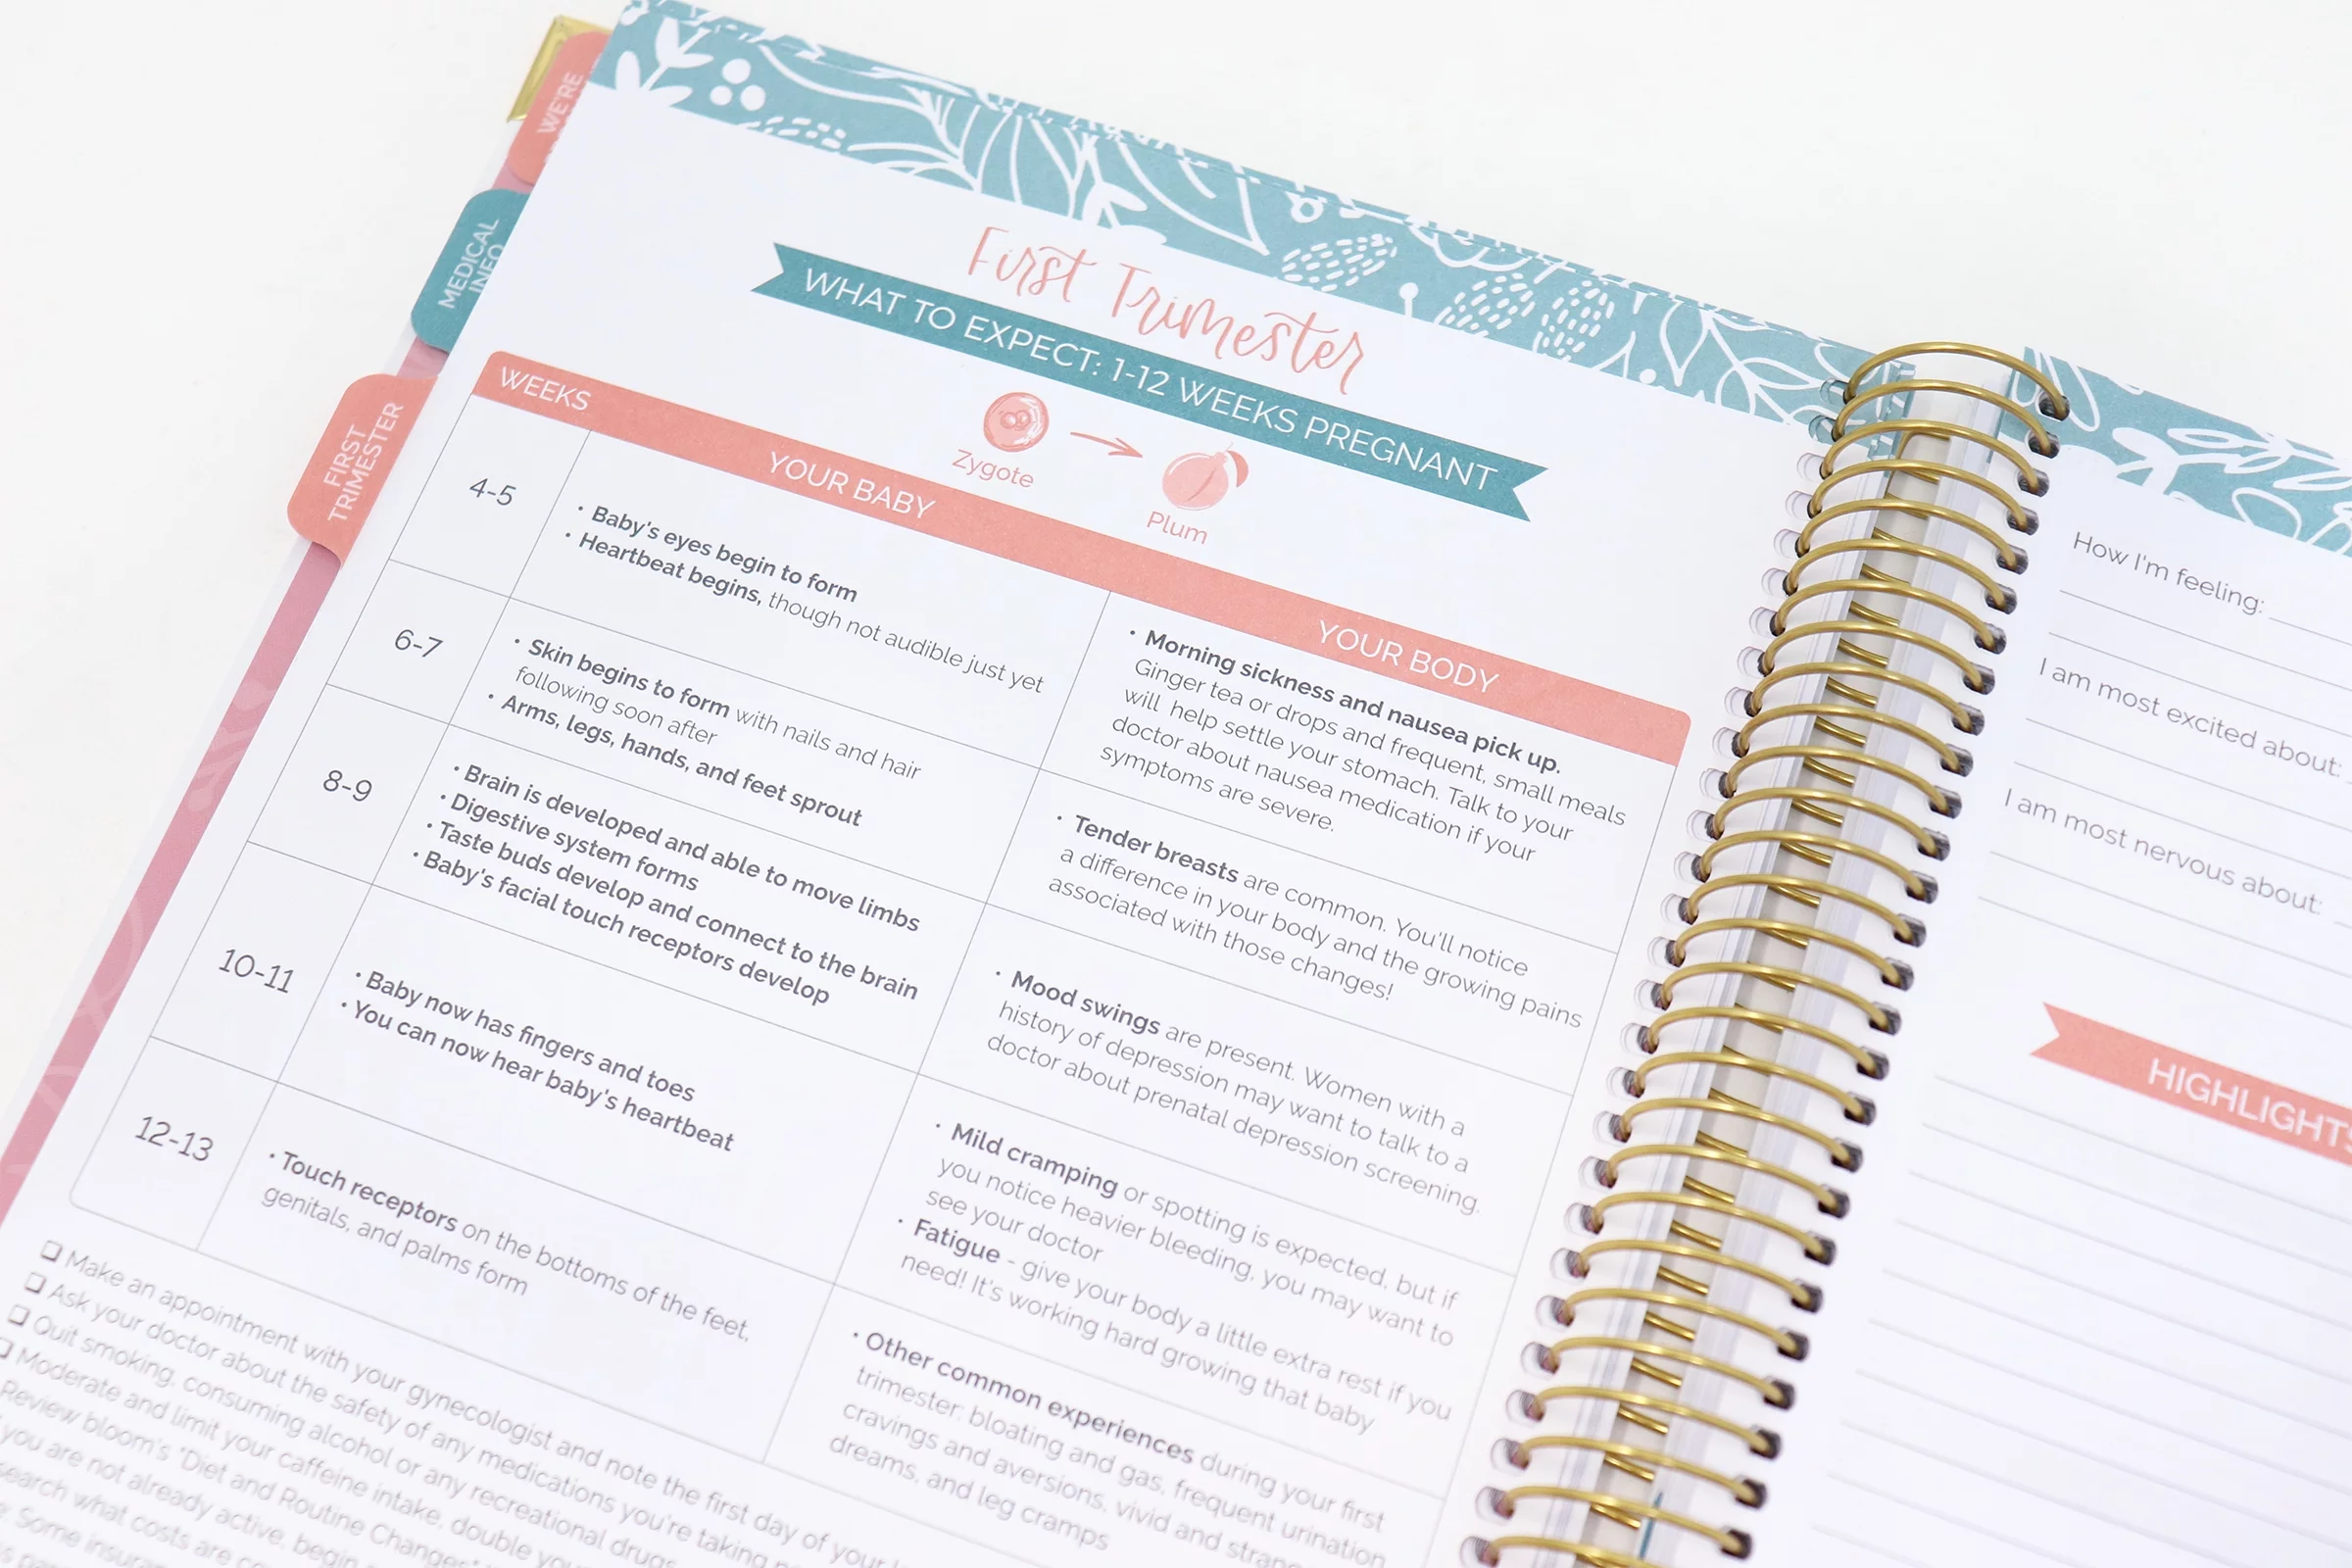 WE'RE
MEDICAL
INFO
FIRST
TRIMESTER
First Trimester
WHAT TO EXPECT: 1-12 WEEKS PREGNANT
Zygote
Plum
WEEKS
YOUR BABY
YOUR BODY
4-5
• Baby's eyes begin to form
• Heartbeat begins, though not audible just yet
• Morning sickness and nausea pick up.
Ginger tea or drops and frequent, small meals
will help settle your stomach. Talk to your
doctor about nausea medication if your
symptoms are severe.
6-7
• Skin begins to form with nails and hair
following soon after
• Arms, legs, hands, and feet sprout
• Tender breasts are common. You'll notice
a difference in your body and the growing pains
associated with those changes!
8-9
• Brain is developed and able to move limbs
• Digestive system forms
• Taste buds develop and connect to the brain
• Baby's facial touch receptors develop
• Mood swings are present. Women with a
history of depression may want to talk to a
doctor about prenatal depression screening.
10-11
• Baby now has fingers and toes
• You can now hear baby's heartbeat
• Mild cramping or spotting is expected, but if
you notice heavier bleeding, you may want to
see your doctor
• Fatigue - give your body a little extra rest if you
need! It's working hard growing that baby
12-13
• Touch receptors on the bottoms of the feet,
genitals, and palms form
• Other common experiences during your first
trimester: bloating and gas, frequent urination
cravings and aversions, vivid and
dreams, and leg cramps
❏ Make an appointment with your gynecologist and note the first day of your
❏ Ask your doctor about the safety of any medications you're taking
❏ Quit smoking, consuming alcohol or any recreational drugs
❏ Moderate and limit your caffeine intake, double
Review bloom's "Diet and Routine Changes"
you are not already active, begin
what costs are
Some
How I'm feeling:
I am most excited about:
I am most nervous about:
HIGHLIGHTS